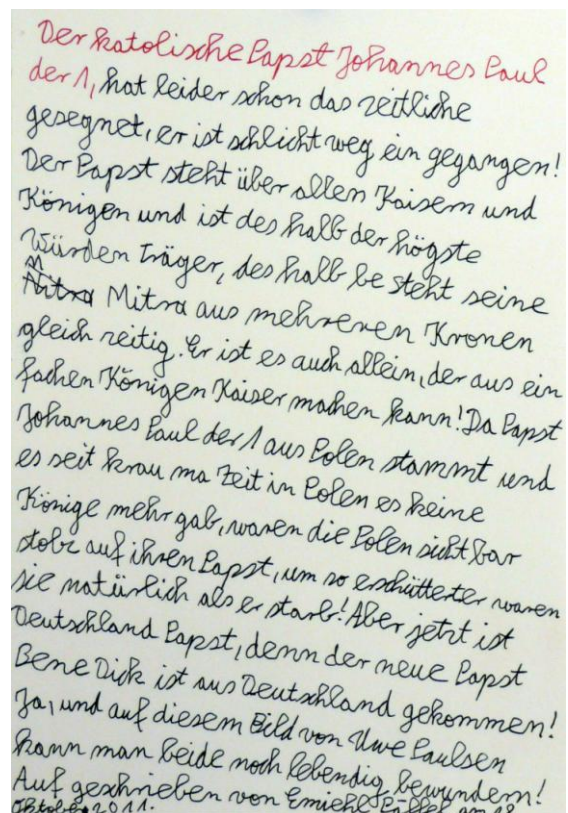 Der katolische Papst Johannes Paul
der 1, hat leider schon das zeitliche
gesegnet, er ist schlicht weg ein gegangen!
Der Papst steht über allen Kaisern und
Königen und ist des halb der högste
Würden Träger, des halb be steht seine
Mitra aus mehreren Kronen
gleich zeitig. Er ist es auch allein, der aus ein
fachen Königen Kaiser machen kann! Da Papst
Johannes Paul der 1 aus Polen stammt und
es seit krau ma Zeit in Polen es keine
Könige mehr gab, waren die Polen sicht bar
stolz auf ihren Papst, um so erschütterter waren
sie natürlich als er starb! Aber jetzt ist
Deutschland Papst, denn der neue Papst
Bene Dick ist aus Deutschland gekommen!
Ja, und auf diesem Bild von Uwe Paulsen
kann man beide noch lebendig bewundern!
Auf geschrieben von am 18
Oktober 2011.